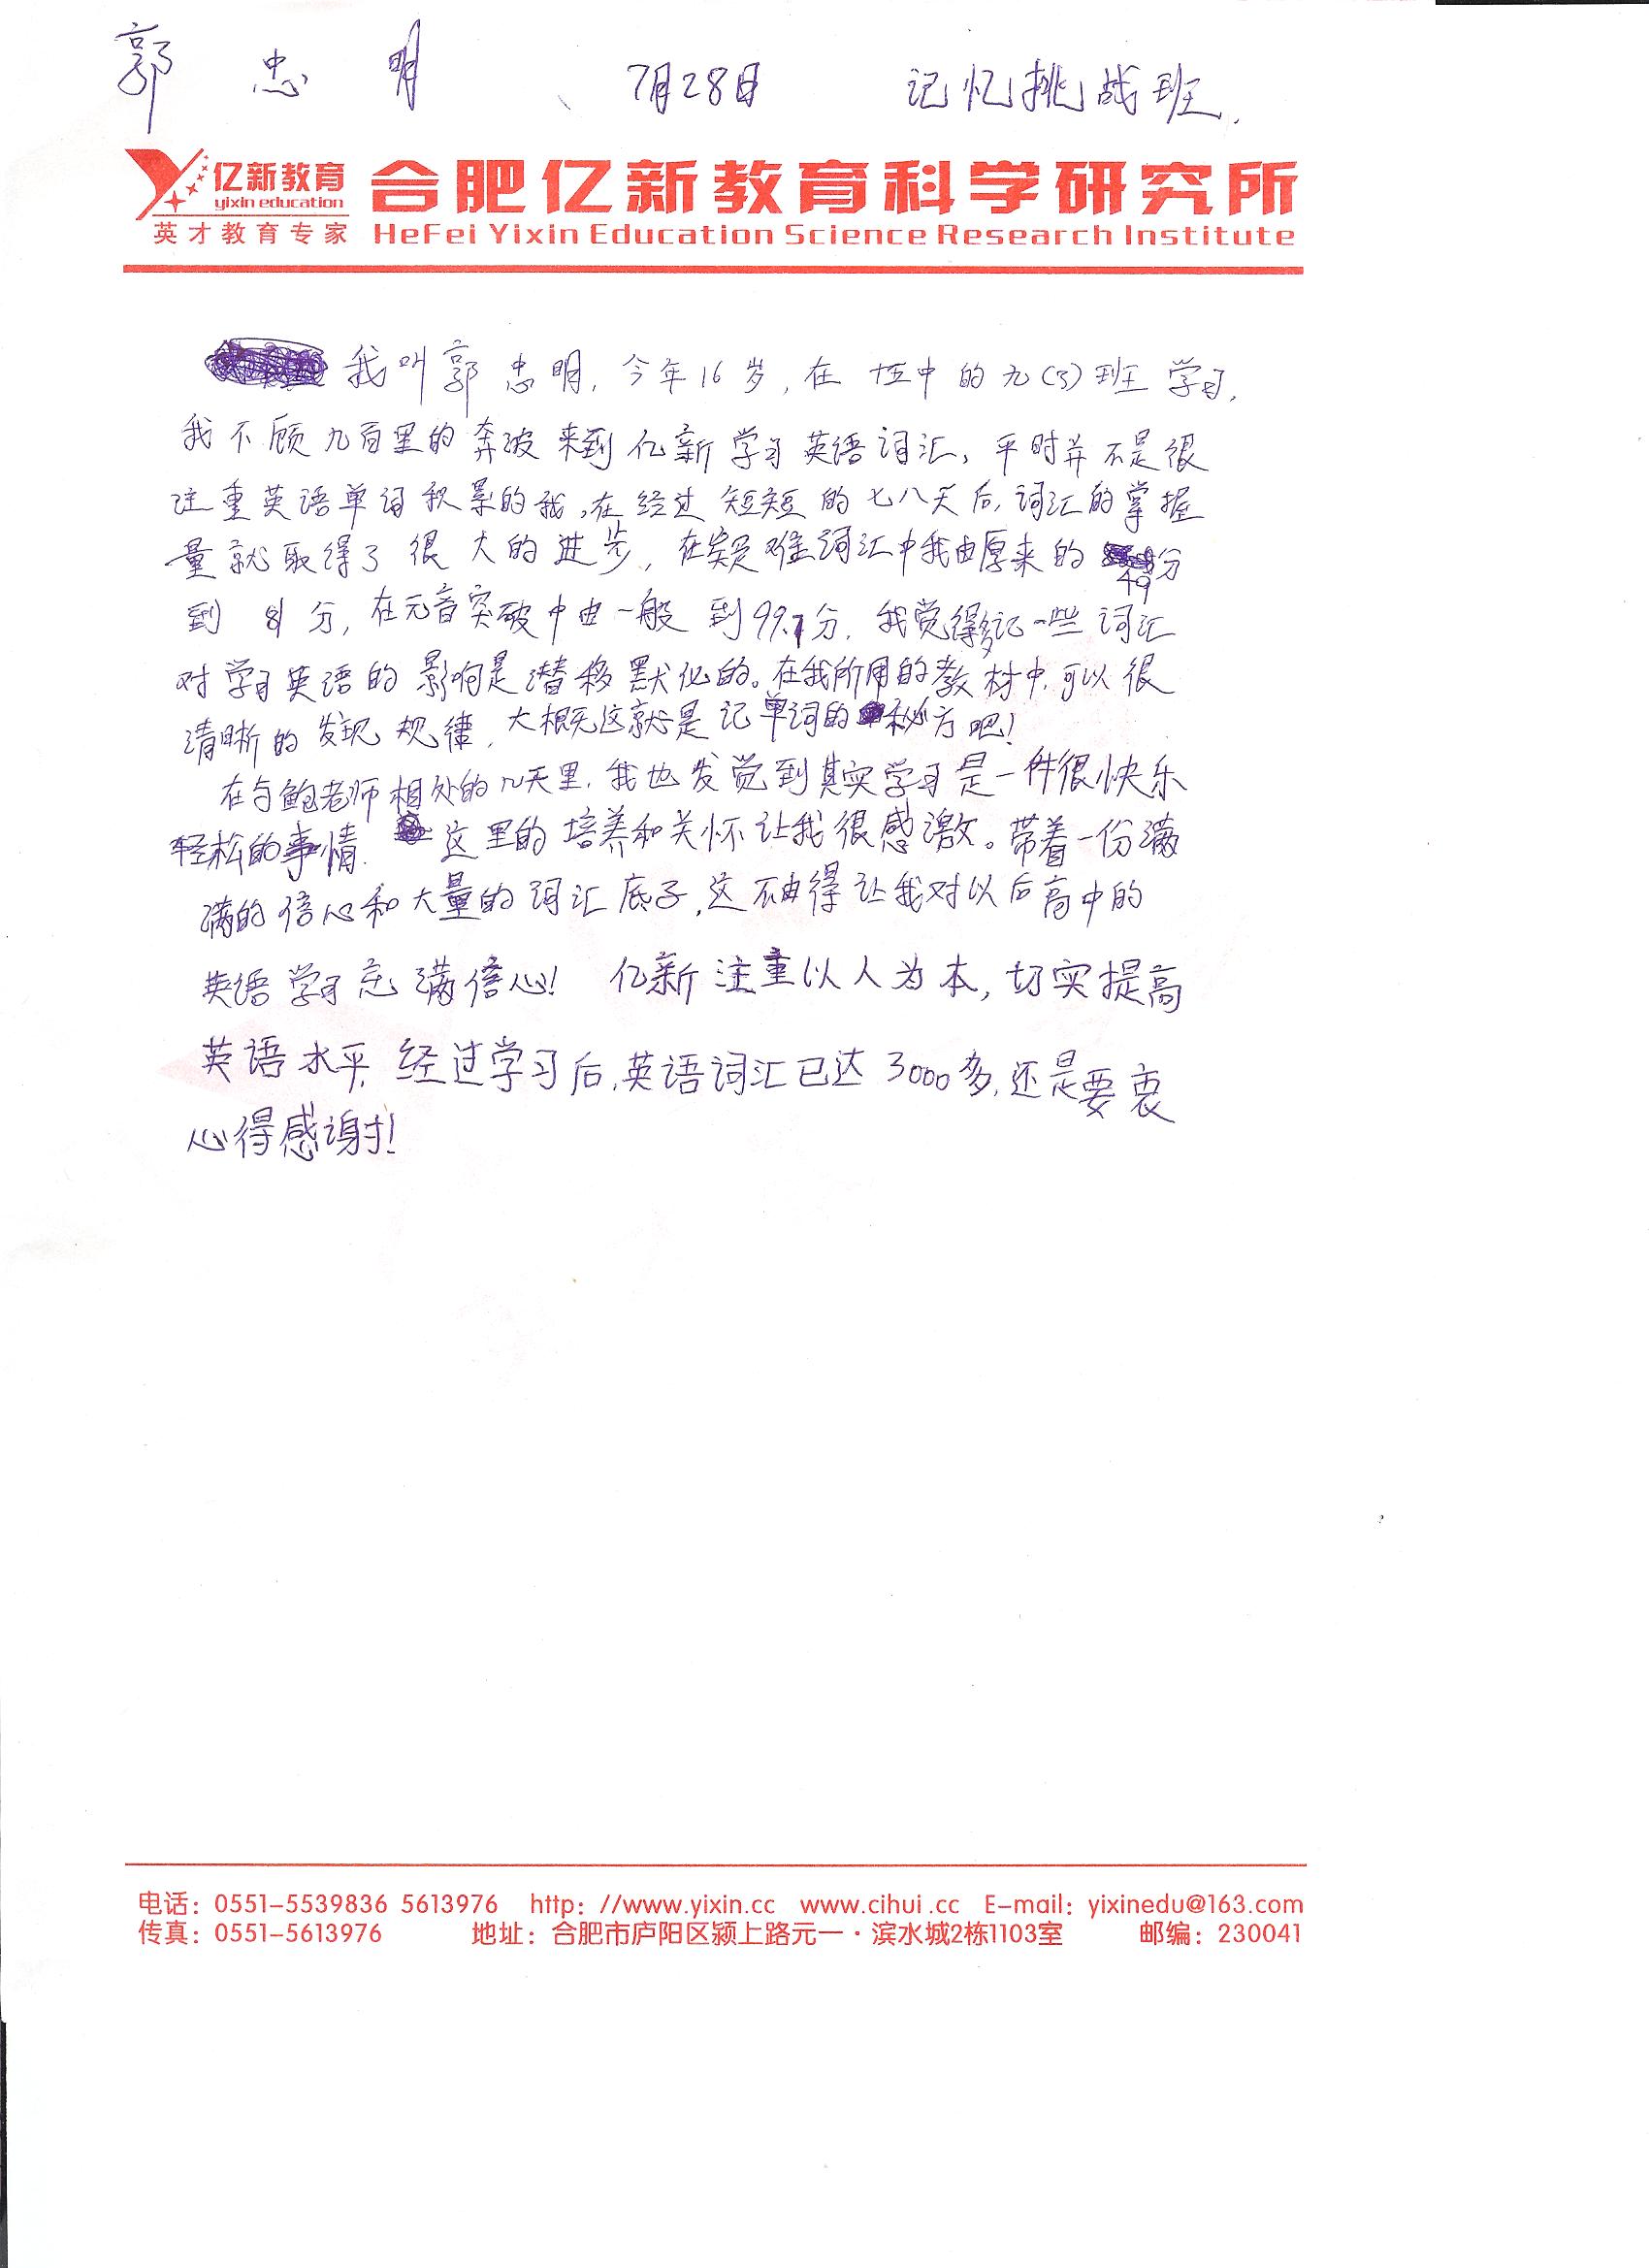 郭忠明 7月28日 记忆挑战班.
亿新教育 合肥亿新教育科学研究所
yixin education
英才教育专家 HeFei Yixin Education Science Research Institute
我叫郭忠明, 今年16岁, 在十五中的九(3)班学习,
我不顾九百里的奔波来到亿新学习英语词汇, 平时并不是很
注重英语单词积累的我,在经过短短的七八天后,词汇的掌握
量就取得了很大的进步, 在疑难词汇中我由原来的49分
到81分, 在元音突破中由一般到99.1分. 我觉得多记一些词汇
对学习英语的影响是潜移默化的。在我所用的教材中,可以很
清晰的发现规律, 大概这就是记单词的秘方吧!
在与鲍老师相处的几天里, 我也发觉到其实学习是一件很快乐
轻松的事情. 这里的培养和关怀让我很感激。带着一份满
满的信心和大量的词汇底子,这不由得让我对以后高中的
英语学习充满信心! 亿新注重以人为本, 切实提高
英语水平, 经过学习后,英语词汇已达3000多,还是要衷
心得感谢!
电话：0551-5539836 5613976 http：//www.yixin.cc www.cihui.cc E-mail：yixinedu@163.com
传真：0551-5613976 地址：合肥市庐阳区颍上路元一·滨水城2栋1103室 邮编：230041